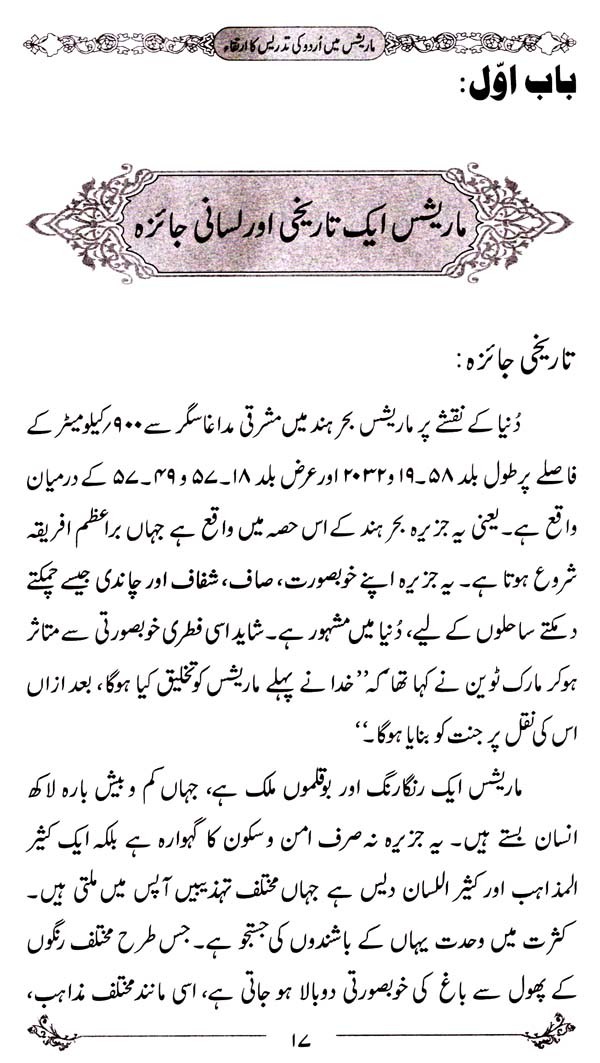 ماریشس میں اُردو کی تدریس کا ارتقاء
باب اوّل:
ماریشس ایک تاریخی اور لسانی جائزہ
تاریخی جائزہ:
دُنیا کے نقشے پر ماریشس بحر ہند میں مشرقی مداغاسگر سے ۹۰۰؍کیلومیٹر کے
فاصلے پر طول بلد ۵۸۔۱۹ و ۲۰۳۲ اور عرض بلد ۱۸۔۵۷ و ۴۹۔۵۷ کے درمیان
واقع ہے۔ یعنی یہ جزیرہ بحر ہند کے اس حصہ میں واقع ہے جہاں براعظم افریقہ
شروع ہوتا ہے۔ یہ جزیرہ اپنے خوبصورت، صاف، شفاف اور چاندی جیسے چمکتے
دمکتے ساحلوں کے لیے، دُنیا میں مشہور ہے۔ شاید اسی فطری خوبصورتی سے متاثر
ہوکر مارک ٹوین نے کہا تھا کہ ’’خدا نے پہلے ماریشس کو تخلیق کیا ہوگا، بعد ازاں
اس کی نقل پر جنت کو بنایا ہوگا۔‘‘
ماریشس ایک رنگارنگ اور بوقلموں ملک ہے، جہاں کم و بیش بارہ لاکھ
انسان بستے ہیں۔ یہ جزیرہ نہ صرف امن وسکون کا گہوارہ ہے بلکہ ایک کثیر
المذاہب اور کثیر اللسان دیس ہے جہاں مختلف تہذیبیں آپس میں ملتی ہیں۔
کثرت میں وحدت یہاں کے باشندوں کی جستجو ہے۔ جس طرح مختلف رنگوں
کے پھول سے باغ کی خوبصورتی دوبالا ہو جاتی ہے، اسی مانند مختلف مذاہب،
۱۷